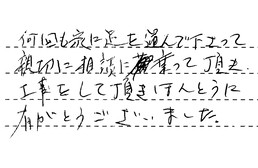 何回も家に足を運んで下さって
親切に相談に乗って頂き
工事をして頂きほんとうに
有がとうございました。